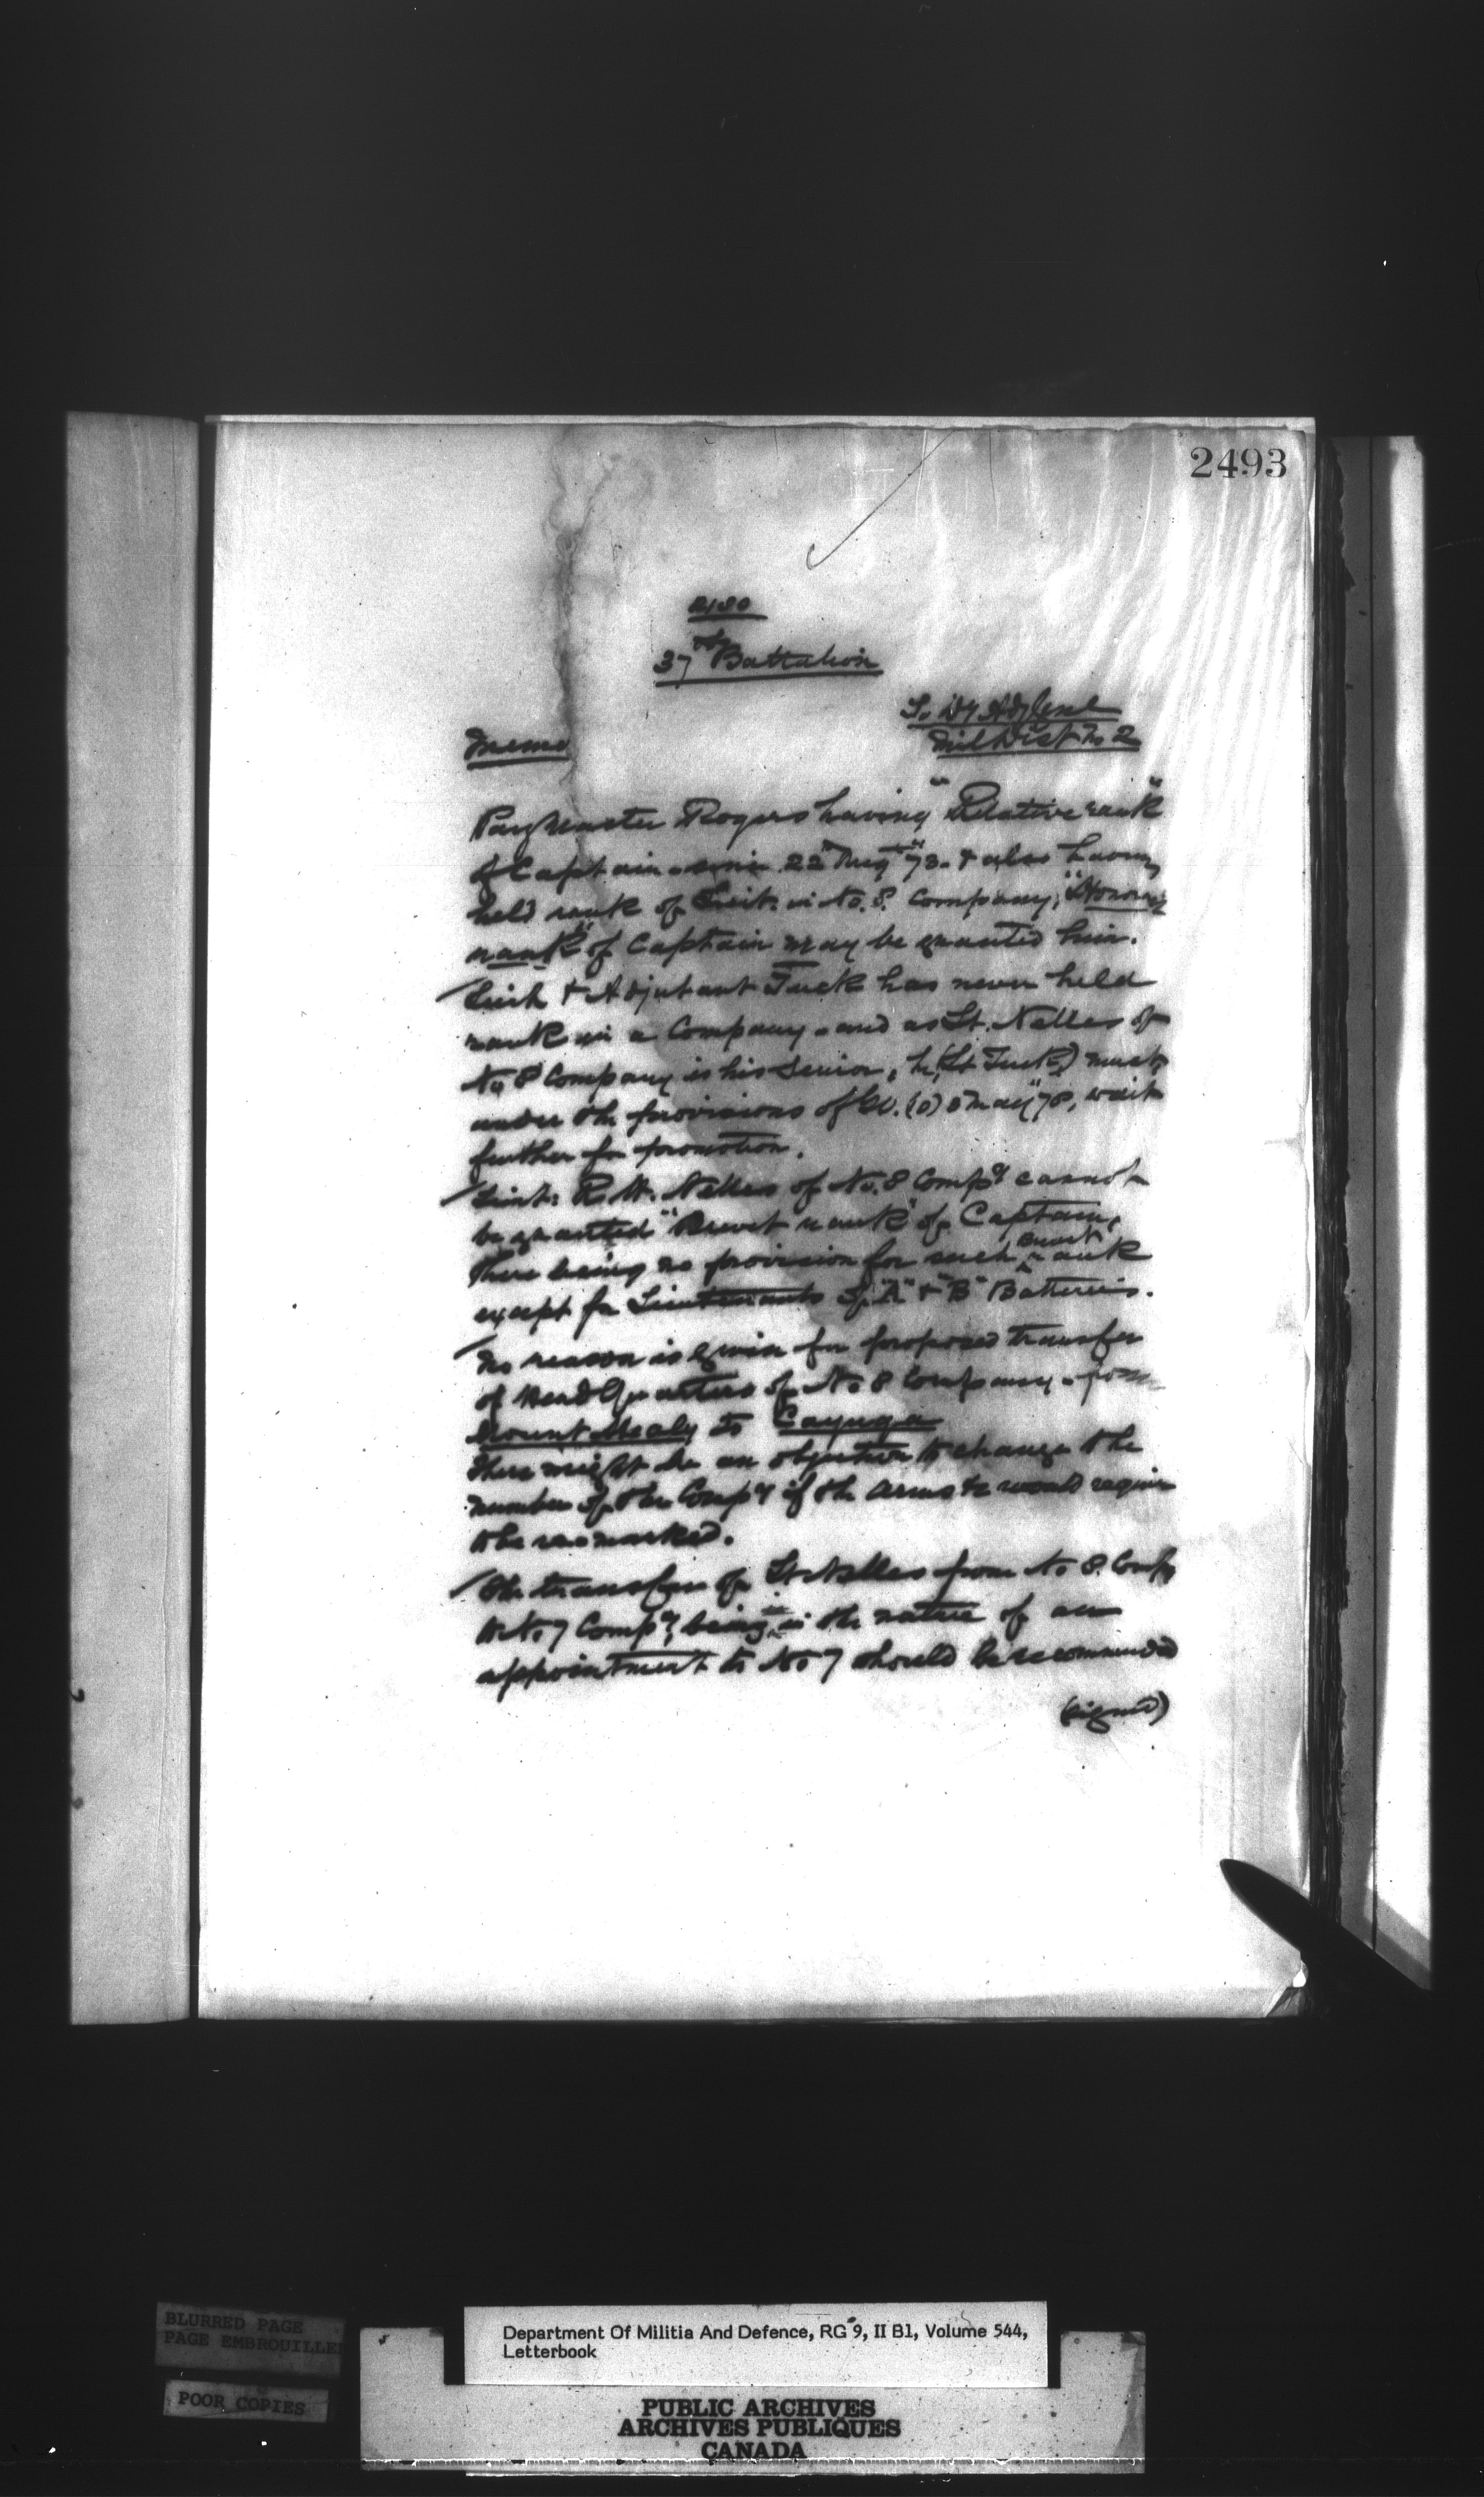 2493
37th Battalion
To Dy Adj Genl
Mil Dist No 2
Memo
Paymaster Rogers having "Relative rank"
of Captain since 22nd Augt 73. & also having
held rank of Lieut. in No. 8. Company, "Honorary
rank" of Captain may be granted him.
Lieut & Adjutant Tuck has never held
rank in a Company - and as Lt. Nelles of
No 8 Company is his senior, he (Lt Tuck) must
under the provisions of May 78, wait
further for promotion.
Lieut: R. W. Nelles of No. 8 Compy cannot
be granted "Brevet rank" of Captain,
there being no provision for such brevet rank
except for Lieutenants of "A" & "B" Batteries.
No reason is given for proposed transfer
of Head Quarters of No 8 Company - from
Mount Healy to Cayuga
There might be an objection to change the
number of the Compy if the arms &c would require
to be remarked.
The transfer of Lt Nelles from No 8. Compy
to No 7 Compy, being in the nature of an
appointment to No 7 should be recommended
(signed)
BLURRED PAGE
PAGE EMBROUILLEE
POOR COPIES
Department Of Militia And Defence, RG 9, II B1, Volume 544,
Letterbook
PUBLIC ARCHIVES
ARCHIVES PUBLIQUES
CANADA